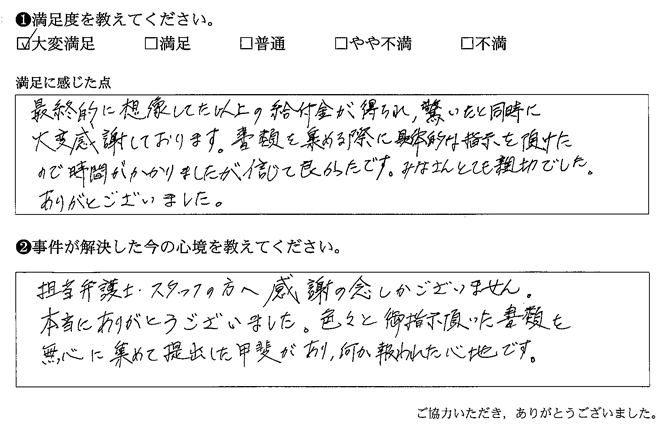 ❶満足度を教えてください。
☑大変満足 □満足 □普通 □やや不満 □不満
満足に感じた点
最終的に想像してた以上の給付金が得られ，驚いたと同時に
大変感謝しております。書類を集める際に具体的な指示を頂けた
ので時間がかかりましたが信じて良かったです。みなさんとても親切でした。
ありがとございました。
❷事件が解決した今の心境を教えてください。
担当弁護士・スタッフの方へ感謝の念しかございません。
本当にありがとうございました。色々と御指示頂いた書類を
無心に集めて提出した甲斐があり，何か報われた心地です。
ご協力いただき，ありがとうございました。